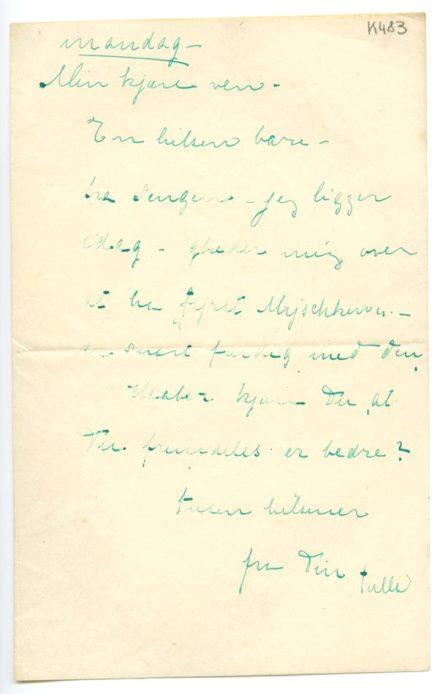 K483
mandag –
Min kjære ven –
En hilsen bare –
fra sengen – jeg ligger
idag – gleder mig over
at ha Myschkin –
er snart færdig med den
Haaber kjære Du at
Du fremdeles er bedre?
tusen hilsener
fra Din Tulle